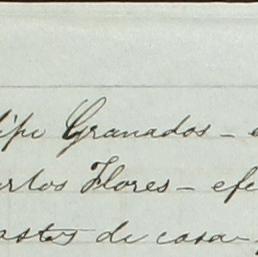 lipe Granados – e
arlos Flores – efe
astos de casa –